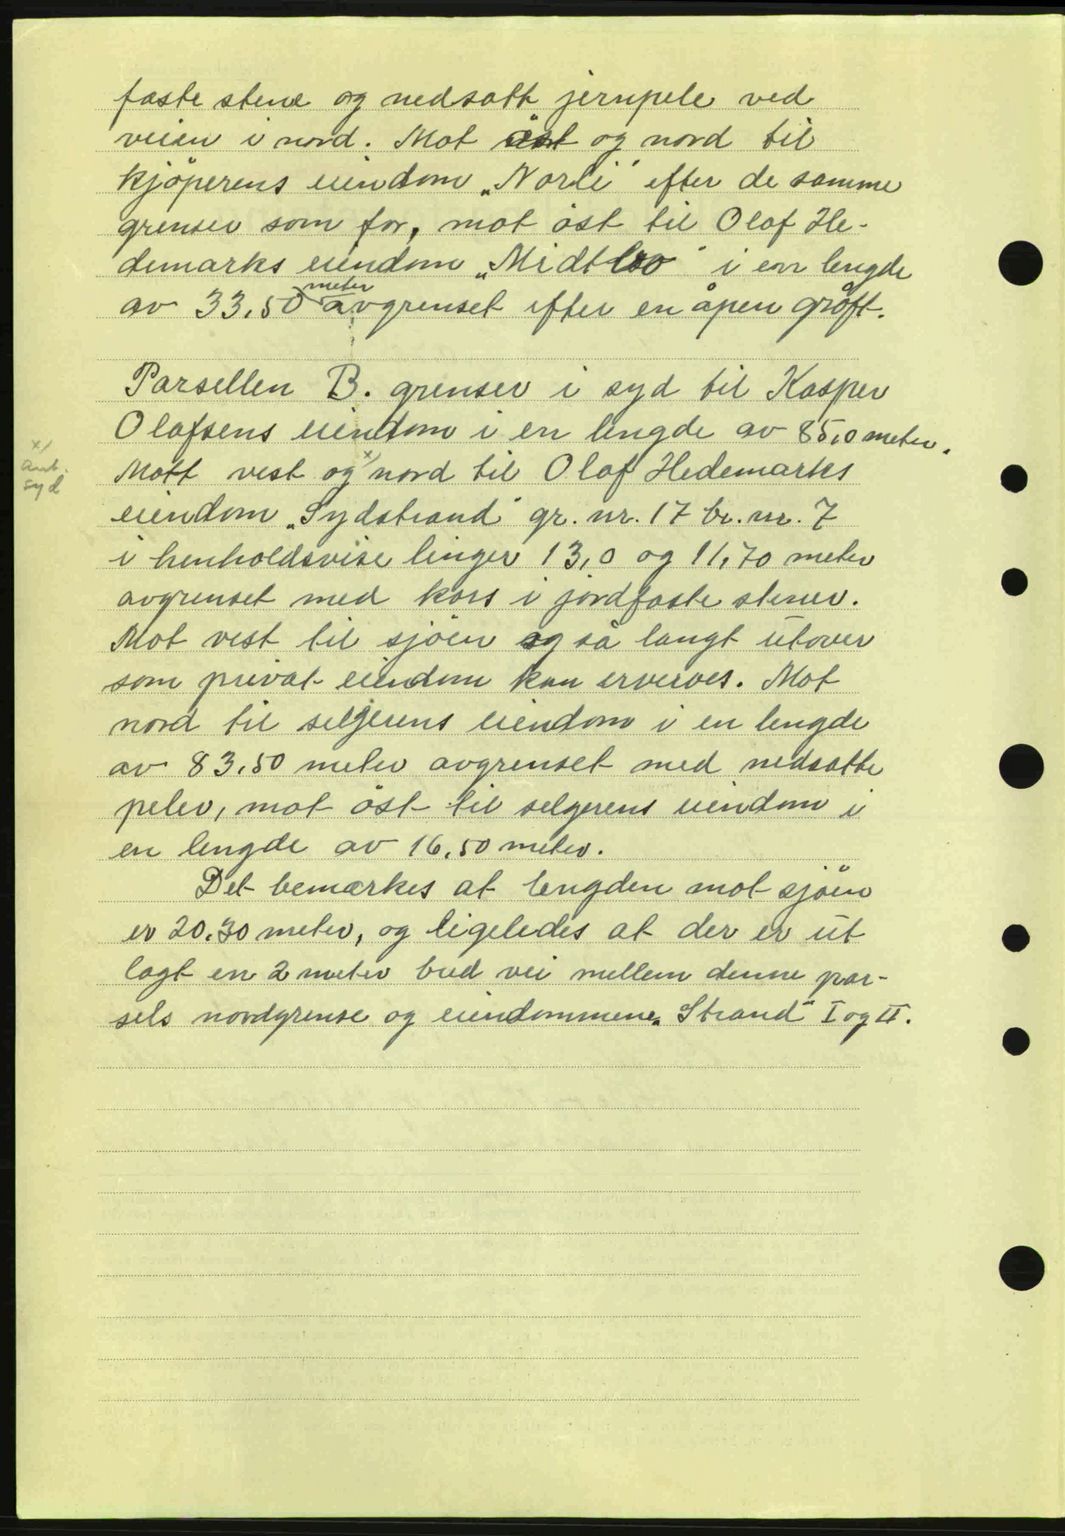 faste stene og nedsatt jernpele ved
veien i nord. Mot öst og nord til
kjöperens eiendom „Norli" efter de samme
grenser som för, mot öst til Olaf He-
demarks eiendom „Midtloo" i en lengde
av 33,50 meter avgrenset efter en åpen gröft.
Parsellen B. grenser i syd til Kasper
Olafsens eiendom i en lengde av 85,0 meter.
x/ ant. syd
Mott vest og x/ nord til Olaf Hedemarks
eiendom „Sydstrand" gr. nr. 17 br. nr. 7
i henholdsvise linger 13,0 og 11,70 meter
avgrenset med kors i jordfaste stener.
Mot vest til sjöen og så langt utover
som privat eiendom kan erverves. Mot
nord til selgerens eiendom i en lengde
av 83,50 meter avgrenset med nedsatte
peler, mot öst til selgerens eiendom i
en lengde av 16,50 meter.
Det bemærkes at lengden mot sjöen
er 20,30 meter, og ligeledes at der er ut
lagt en 2 meter bred vei mellem denne par-
sels nordgrense og eiendommene „Strand" I og II.